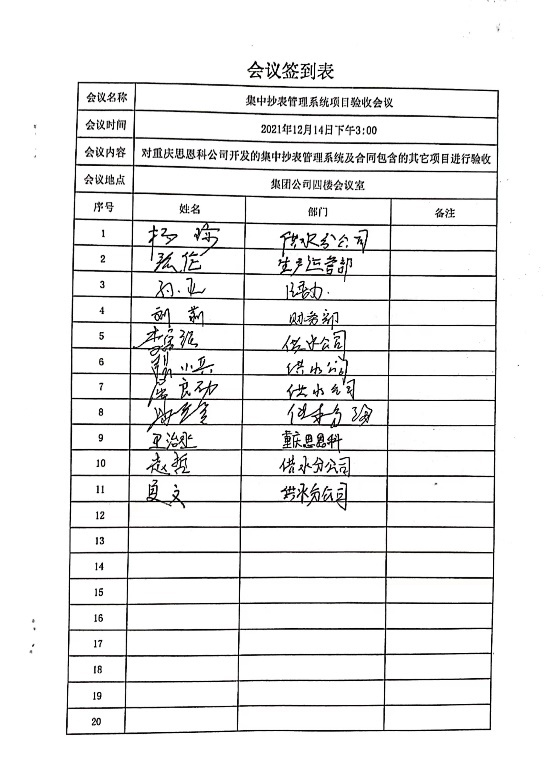 会议签到表
会议名称 集中抄表管理系统项目验收会议
会议时间 2021年12月14日下午3:00
会议内容 对重庆思恩科公司开发的集中抄表管理系统及合同包含的其它项目进行验收
会议地点 集团公司四楼会议室
序号 姓名 部门 备注
1 供水分公司
2 张伦 生产运营部
3
4 刘莉 财务部
5 供水公司
6 小兵 供水公司
7 良劲 供水公司
8
9 重庆思恩科
10 赵哲 供水分公司
11 夏文 供水分公司
12
13
14
15
16
17
18
19
20